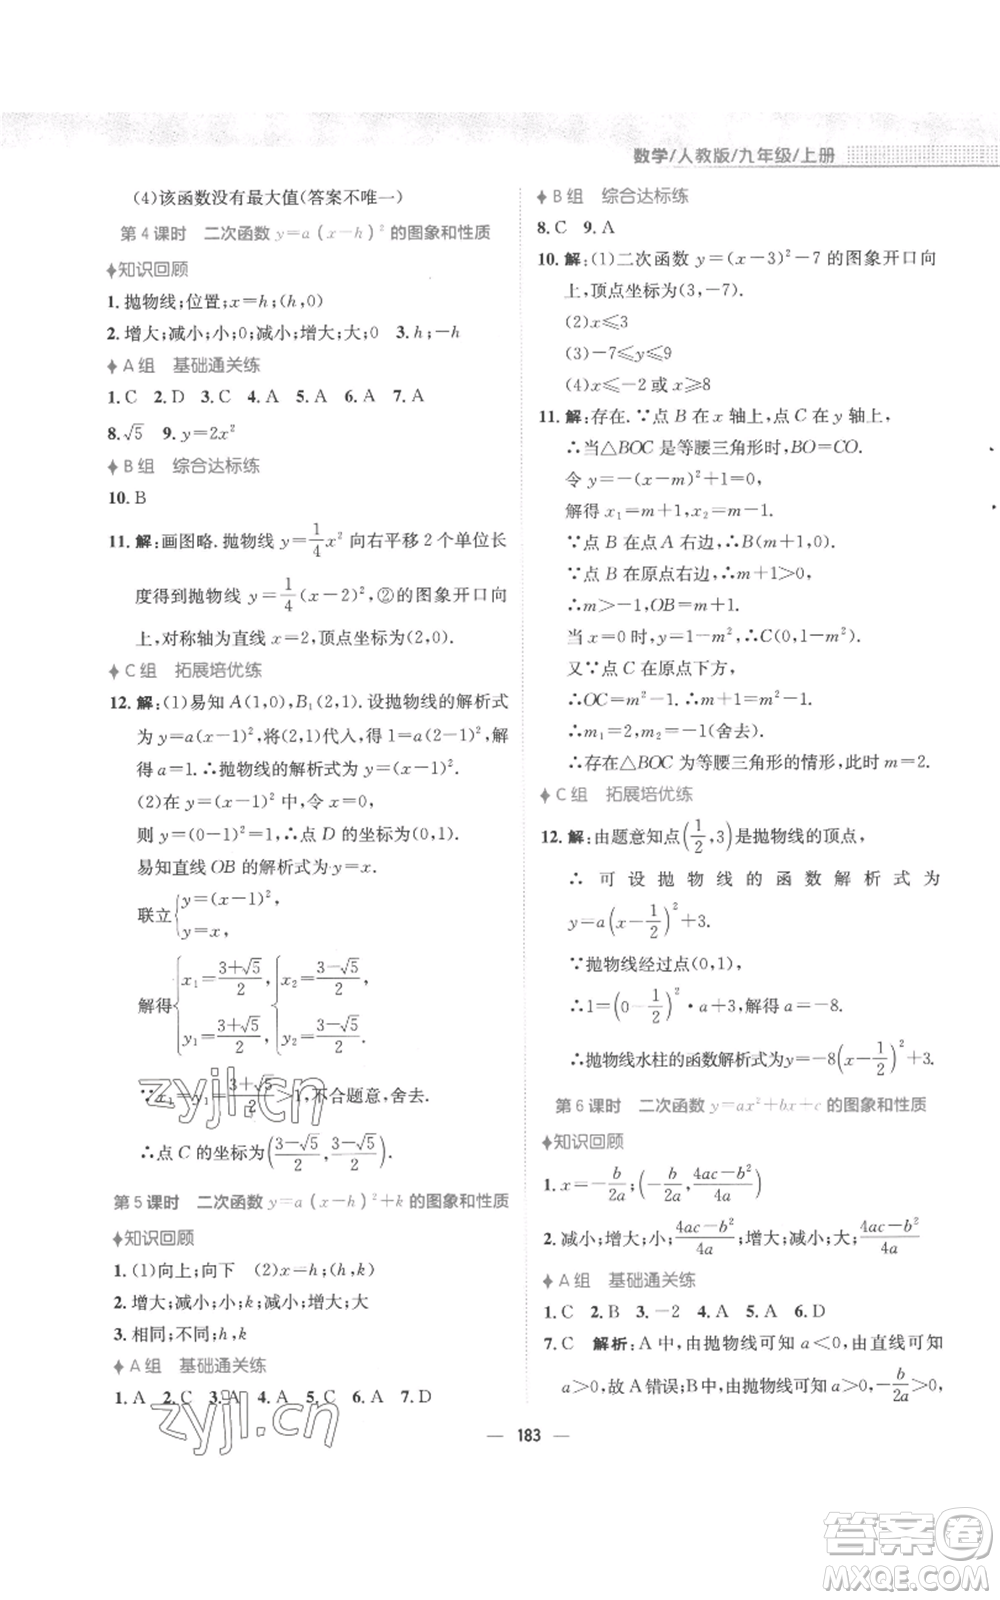 数学/人教版/九年级/上册
(4)该函数没有最大值(答案不唯一)
第4课时 二次函数 y=a(x-h)²的图象和性质
知识回顾
1. 抛物线;位置;x=h;(h,0)
2. 增大;减小;小;0;减小;增大;大;0 3. h;-h
A组 基础通关练
1. C 2. D 3. C 4. A 5. A 6. A 7. A
8. √5 9. y=2x²
B组 综合达标练
10. B
11. 解:画图略. 抛物线 y=1/4x² 向右平移2个单位长
度得到抛物线 y=1/4(x-2)²,②的图象开口向
上,对称轴为直线 x=2,顶点坐标为(2,0).
C组 拓展培优练
12. 解:(1)易知A(1,0),B₁(2,1).设抛物线的解析式
为y=a(x-1)²,将(2,1)代入,得1=a(2-1)²,解
得a=1.∴抛物线的解析式为y=(x-1)².
(2)在 y=(x-1)² 中,令 x=0,
则 y=(0-1)²=1,∴点 D 的坐标为(0,1).
易知直线OB的解析式为y=x.
联立{y=(x-1)², y=x,
解得{x₁=(3+√5)/2, y₁=(3+√5)/2, {x₂=(3-√5)/2, y₂=(3-√5)/2.
∵x₁=(3+√5)/2>1,不合题意,舍去.
∴点 C 的坐标为((3-√5)/2,(3-√5)/2).
第5课时 二次函数 y=a(x-h)²+k的图象和性质
知识回顾
1. (1)向上;向下 (2)x=h;(h,k)
2. 增大;减小;小;k;减小;增大;大;k
3. 相同;不同;h;k
A组 基础通关练
1. A 2. C 3. A 4. C 5. A 6. A 7. D
B组 综合达标练
8. C 9. A
10. 解:(1)二次函数 y=(x-3)²-7 的图象开口向
上,顶点坐标为(3,-7).
(2)x≤3
(3)-7≤y≤9
(4)x≤-2 或 x≥8
11. 解:存在.∵点 B 在 x 轴上,点 C 在 y 轴上,
∴当△BOC 是等腰三角形时,BO=CO.
令 y=-(x-m)²+1=0,
解得 x₁=m+1,x₂=m-1.
∵点 B 在点 A 右边,∴B(m+1,0).
∵点 B 在原点右边,∴m+1>0,
∴m>-1,OB=m+1.
当 x=0 时,y=1-m²,∴C(0,1-m²).
又∵点 C 在原点下方,
∴OC=m²-1,∴m²-1=m+1,
∴m₁=2,m₂=-1(舍去).
∴存在△BOC为等腰三角形的情形,此时m=2.
C组 拓展培优练
12. 解:由题意知点(1/2,3)是抛物线的顶点,
∴可设抛物线的函数解析式为
y=a(x-1/2)²+3.
∵抛物线经过点(0,1),
∴1=(0-1/2)²·a+3,解得 a=-8.
∴抛物线水柱的函数解析式为y=-8(x-1/2)²+3.
第6课时 二次函数 y=ax²+bx+c的图象和性质
知识回顾
1. x=-b/2a;(-b/2a,(4ac-b²)/4a)
2. 减小;增大;小;(4ac-b²)/4a;增大;减小;大;(4ac-b²)/4a
A组 基础通关练
1. C 2. B 3. -2 4. A 5. A 6. D
7. C 解析:A中,由抛物线可知 a<0,由直线可知
a>0,故A错误;B中,由抛物线可知a>0,-b/2a>0,
183
zyjl.cn
zyjl.cn
答案卷
MXQE.COM